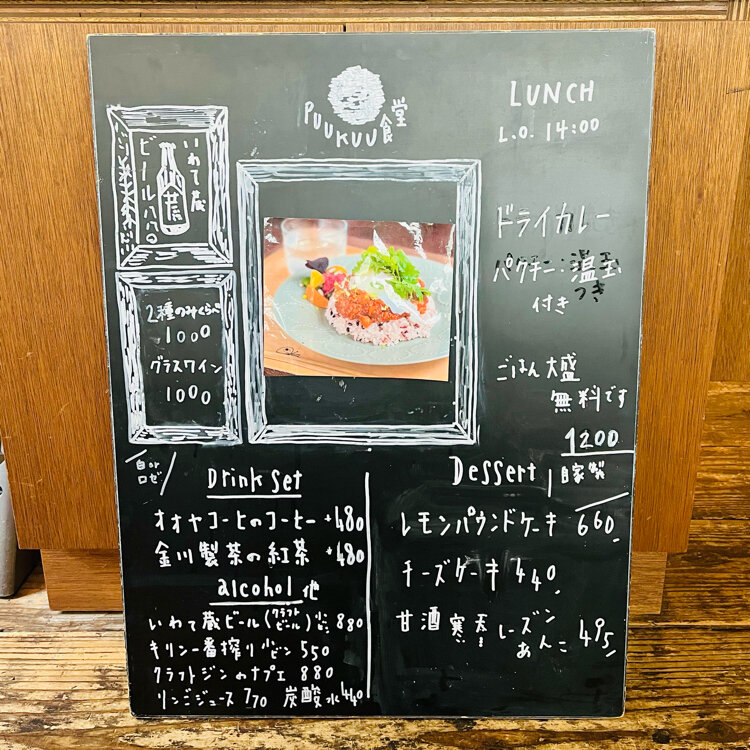 PUUKUU食堂
LUNCH
L.O. 14:00
いわて蔵
ビール 880
ドライカレー
パクチー:温玉
つき
付き
2種のみくらべ
1000
グラスワイン
1000
ごはん大盛
無料です
1200
白or
ロゼ
Drink Set
オオヤコーヒのコーヒー +480
金川製茶の紅茶 +480
alcohol 他
いわて蔵ビール(クラフトビール)小ビン 880
キリン一番搾り小ビン 550
クラフトジンのナプエ 880
リンゴジュース 770 炭酸水 440
Dessert 自家製
レモンパウンドケーキ 660.
チーズケーキ 440.
甘酒寒天 レーズン
あんこ 495